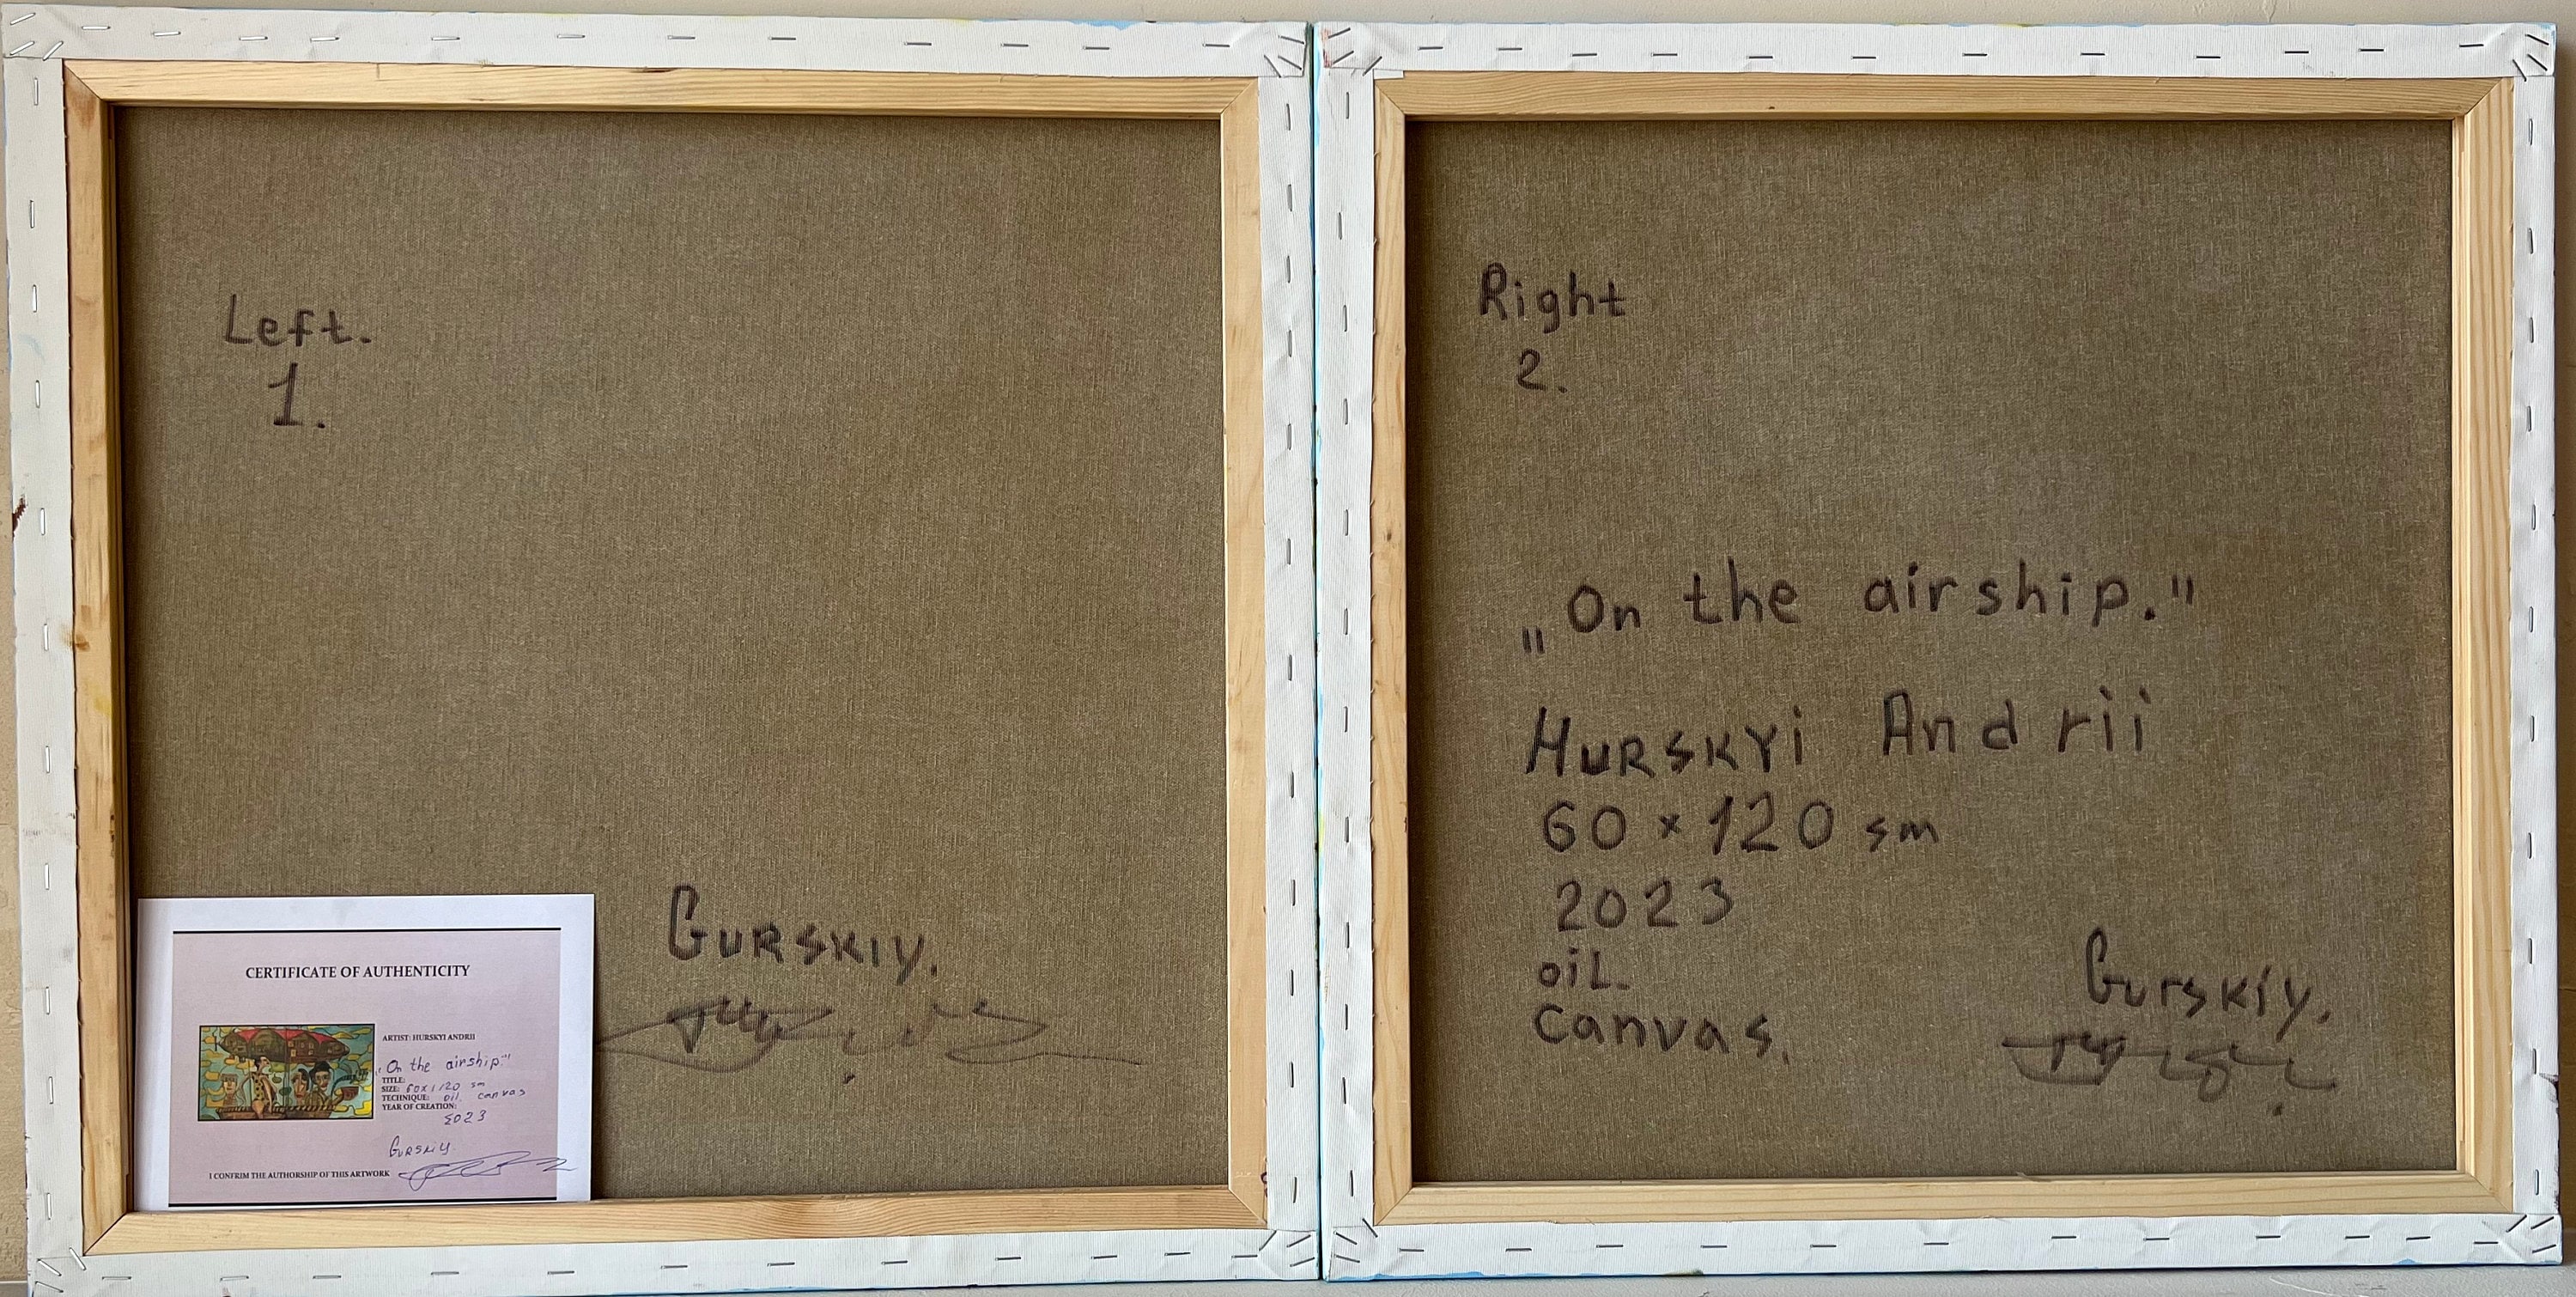 Left.
1.
GURSKIY.
CERTIFICATE OF AUTHENTICITY
ARTIST: HURSKYI ANDRII
„On the airship."
TITLE:
SIZE: 60x120 sm
TECHNIQUE: oil. canvas
YEAR OF CREATION:
2023
GURSKIY.
I CONFRIM THE AUTHORSHIP OF THIS ARTWORK
Right
2.
„On the airship."
HURSKYi Andrii
60 × 120 sm
2023
oiL.
Canvas.
Gurskiy.